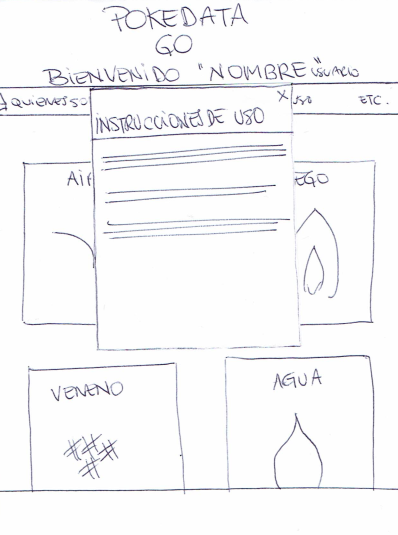 POKEDATA
GO
BIENVENIDO "NOMBRE" USUARIO
QUIENES SO
USO
ETC.
X
INSTRUCCIONES DE USO
AiR
EGO
VENENO
AGUA